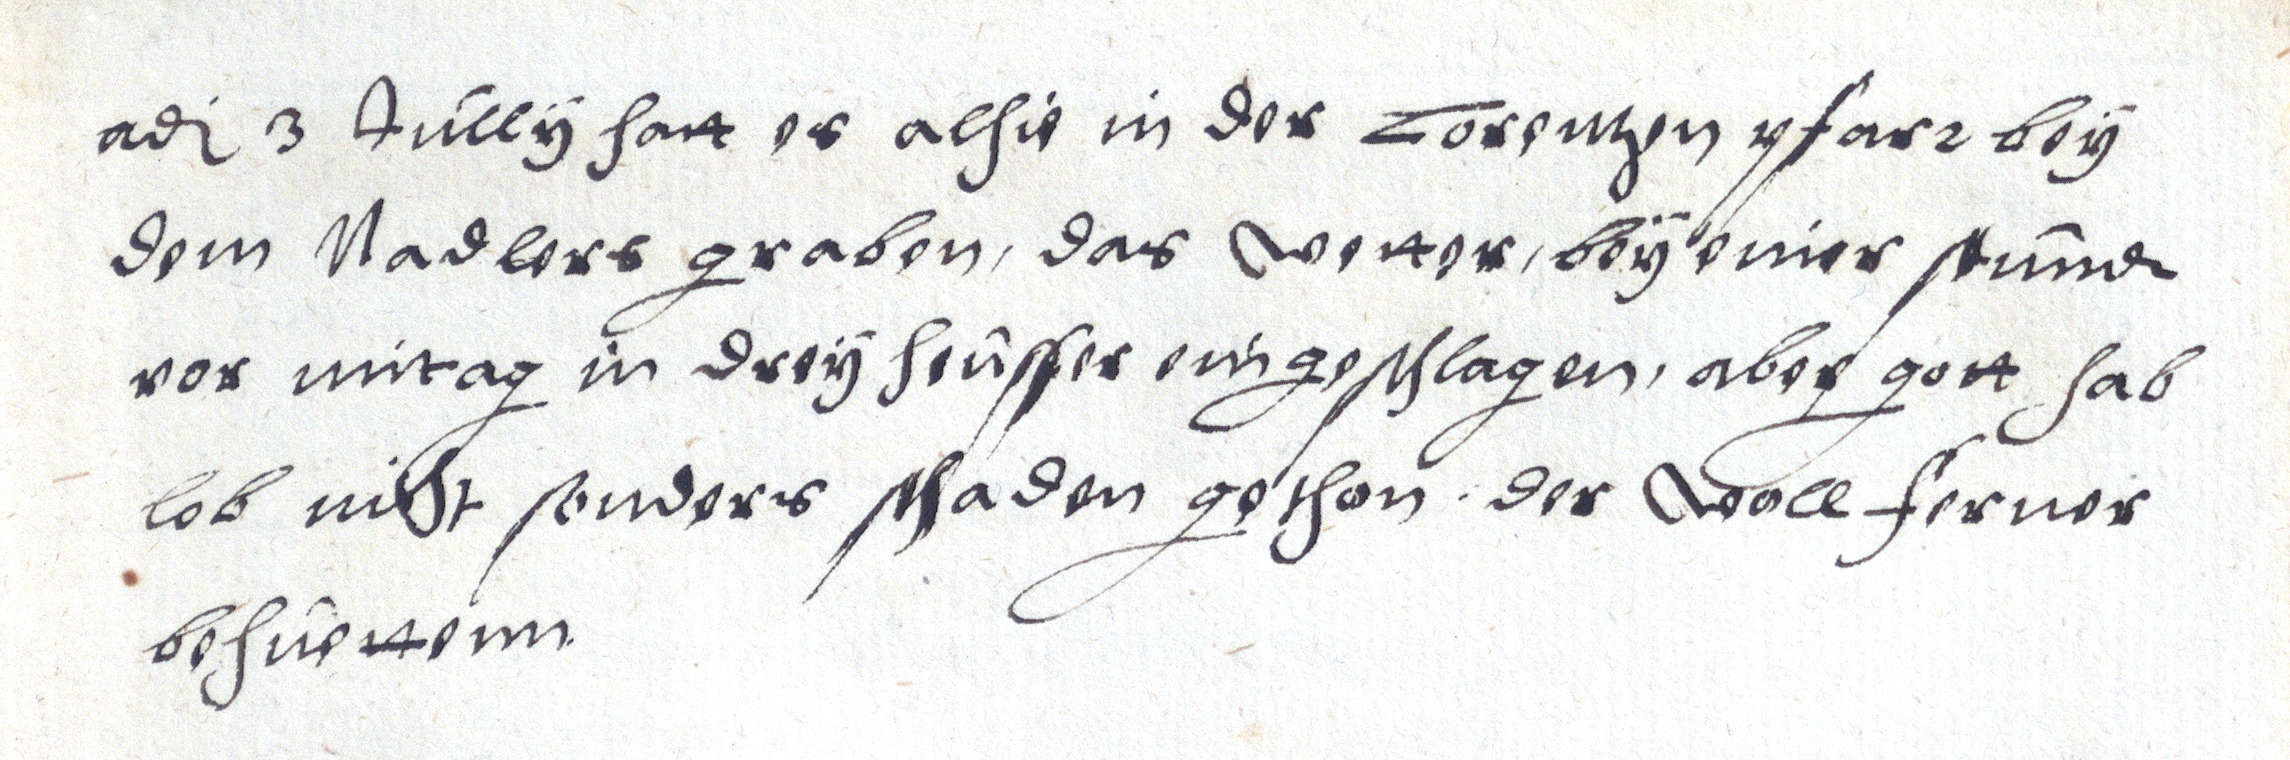 adj 3 Jully hatt es alhie in der Lorentzen pfarr bey
dem Nadlers graben, das wetter, bey einer stund
vor mitag in drey heusser eingeschlagen, aber gott hab
lob nicht sonders schaden gethon. der woll ferner
behuettenn.